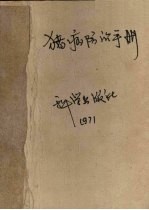 猪病防治手册
科学出版社
1971